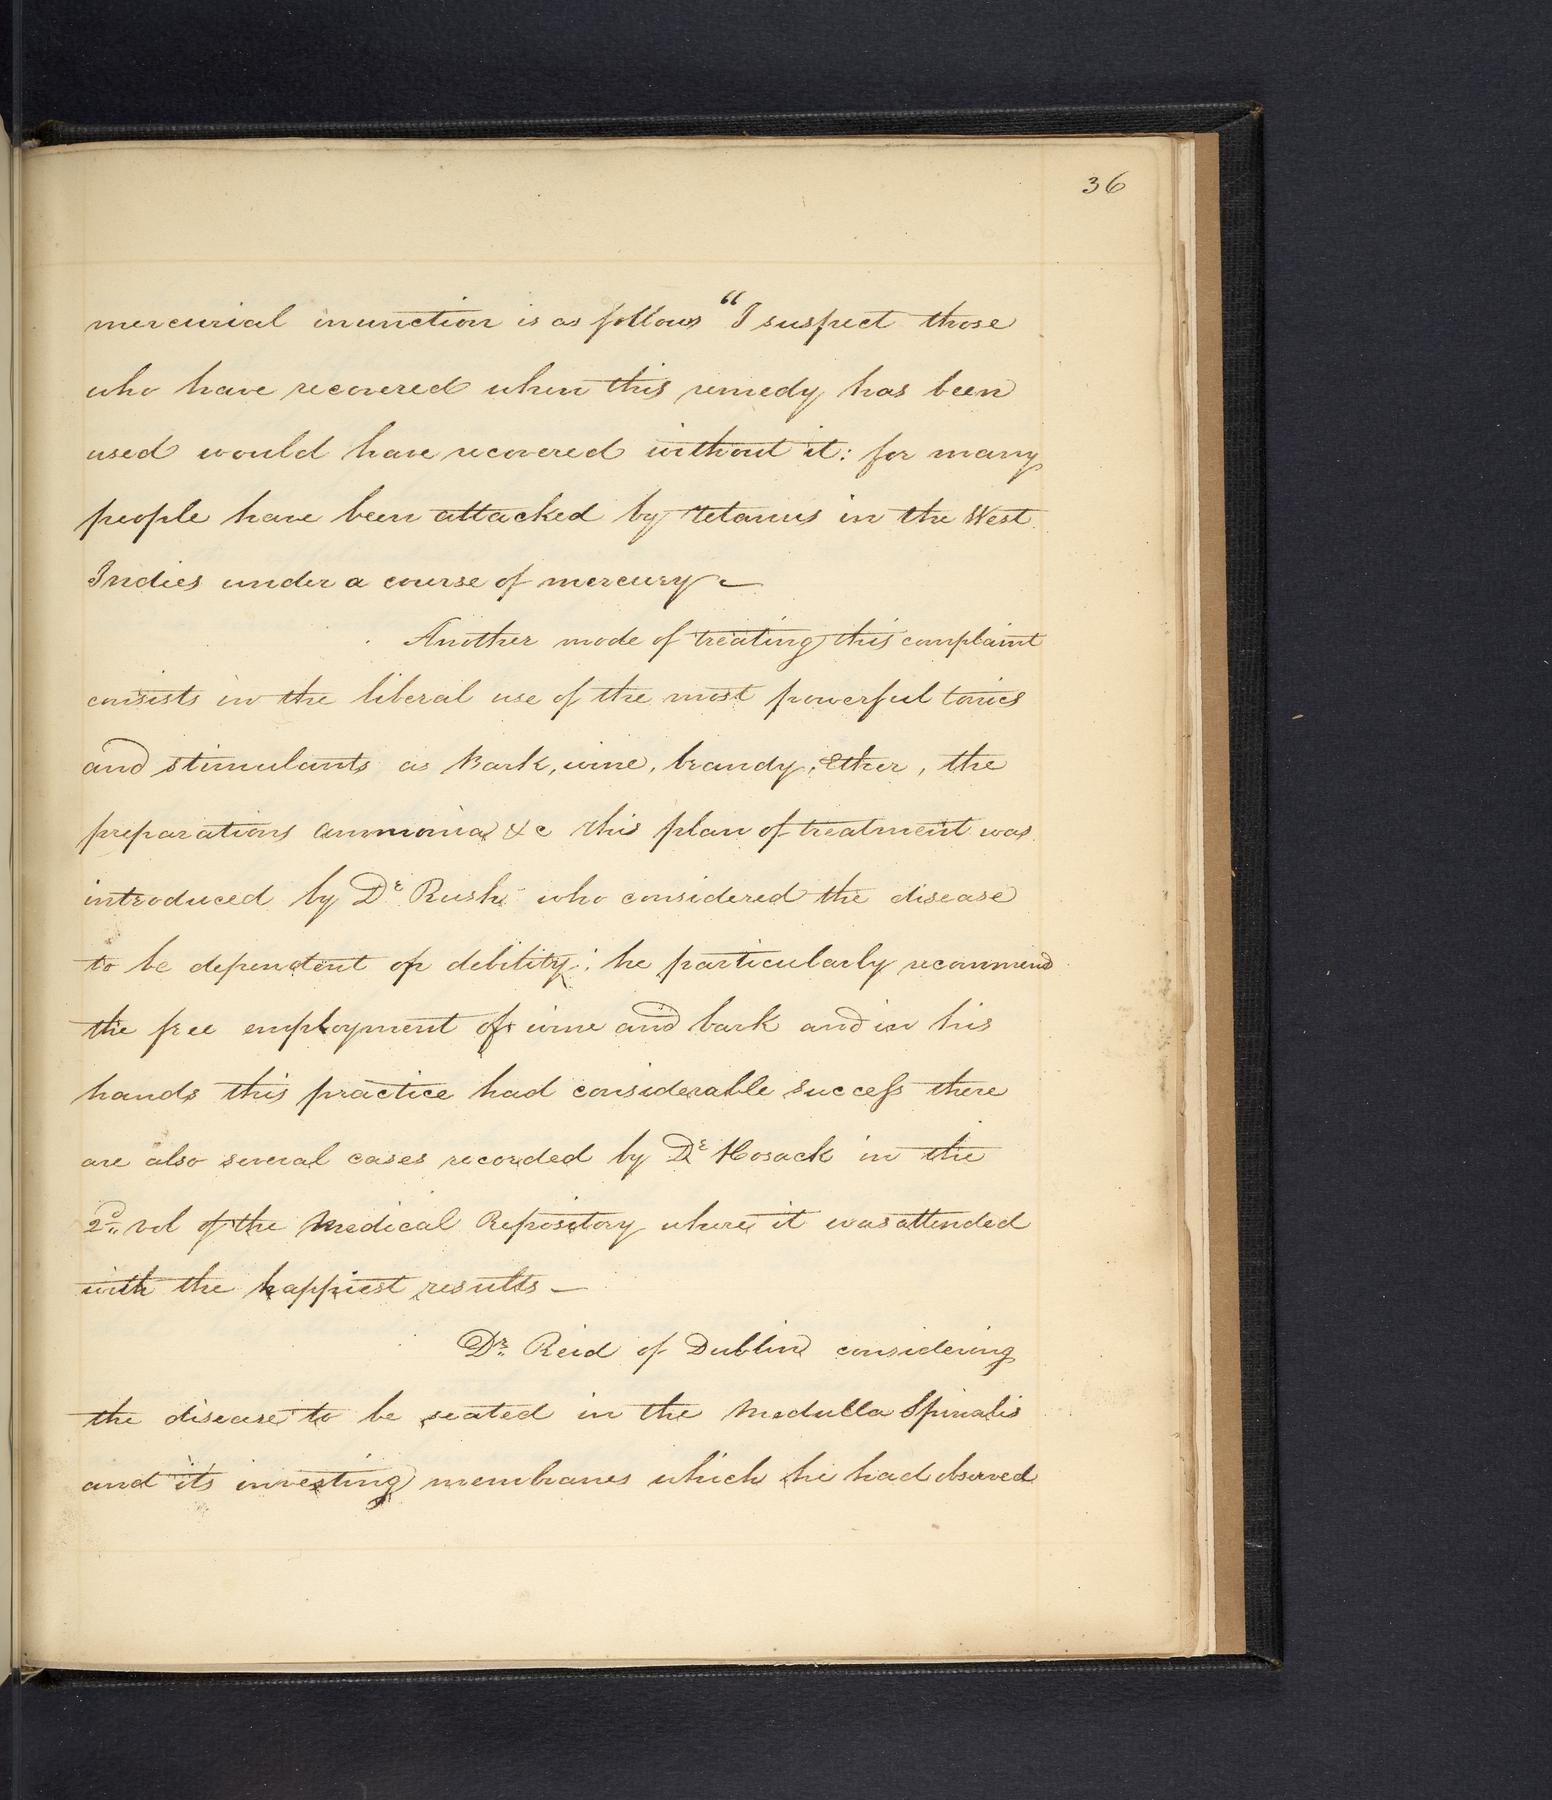 36
mercurial inunction is as follows "I suspect those
who have recovered when this remedy has been
used would have recovered without it: for many
people have been attacked by Tetanus in the West
Indies under a course of mercury —
Another mode of treating this complaint
consists in the liberal use of the most powerful tonics
and stimulants as Bark, wine, brandy, Ether, the
preparations ammonia &c this plan of treatment was
introduced by Dr Rush who considered the disease
to be dependent on debility; he particularly recommend
the free employment of wine and bark and in his
hands this practice had considerable success there
are also several cases recorded by Dr Hosack in the
2d vol of the Medical Repository where it was attended
with the happiest results —
Dr Reid of Dublin considering
the disease to be seated in the Medulla Spinalis
and its investing membranes which he had observed